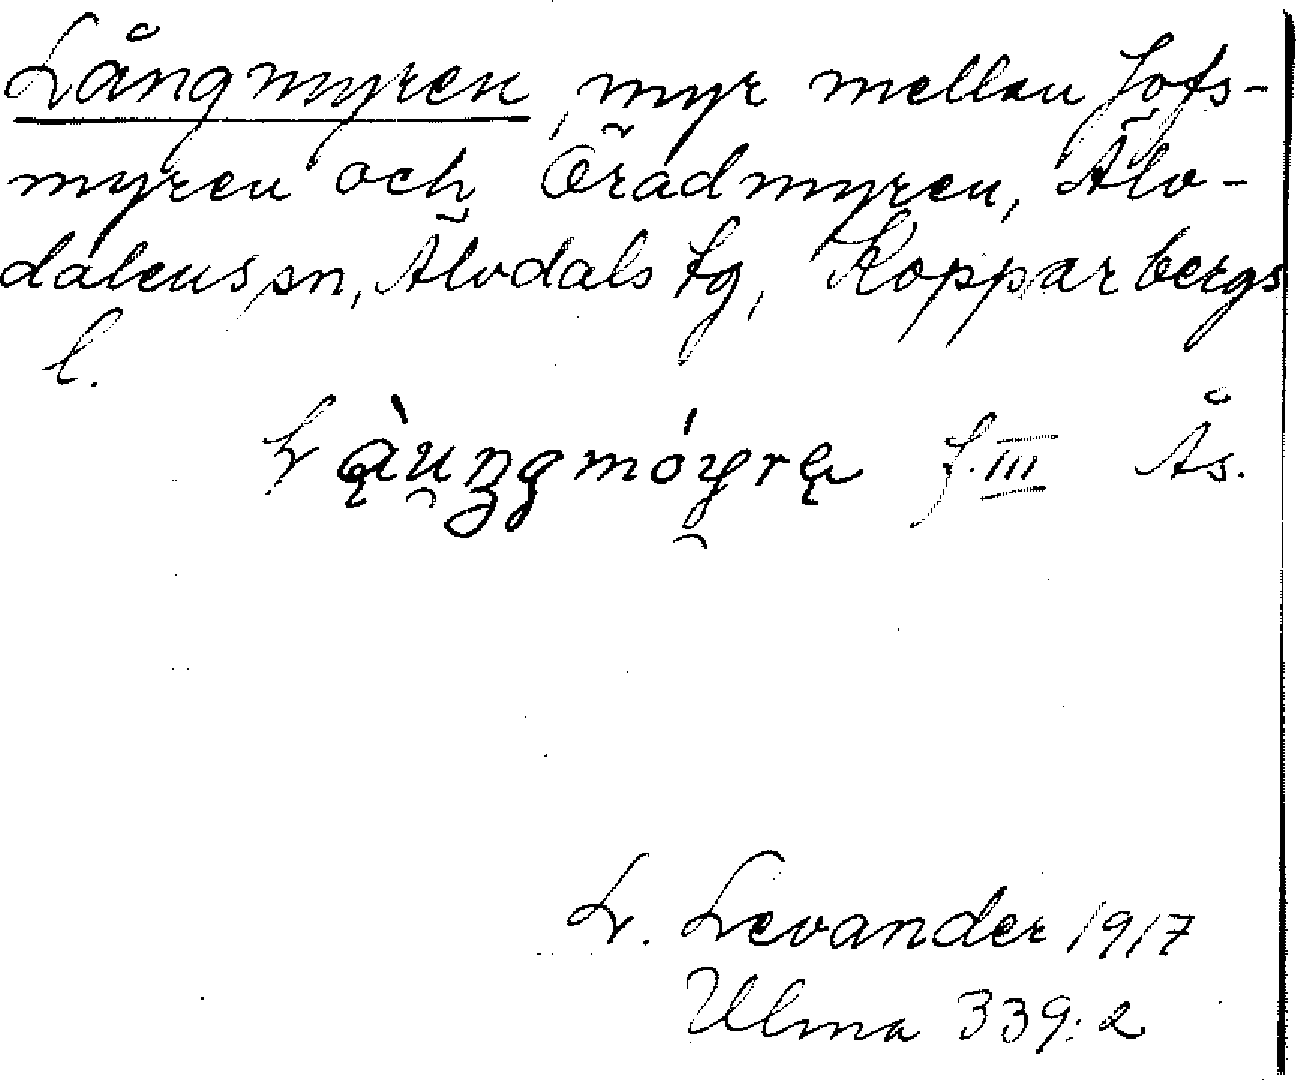 Långmyren, myr mellan Jofs-
myren och Örådmyren, Älv-
dalens sn, Älvdals tg, Kopparbergs
l.
Lą̀u̯ŋgmóy̯rą f. III Ås.
L. Levander 1917
Ulma 339:2